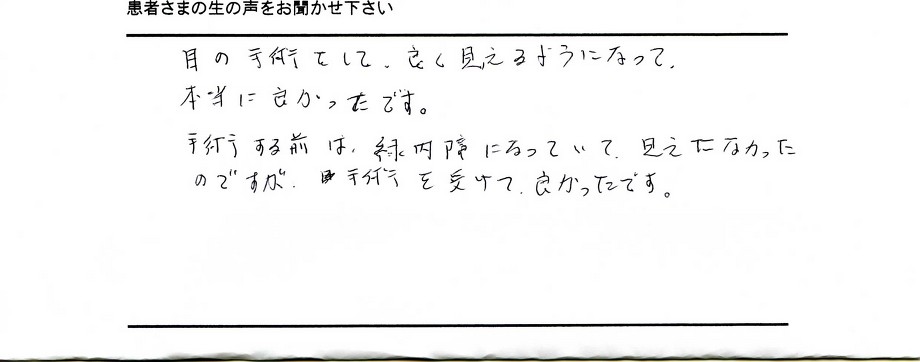 患者さまの生の声をお聞かせ下さい
目の手術をして、良く見えるようになって、
本当に良かったです。
手術する前は、緑内障になっていて、見えたなかった
のですが、手術を受けて、良かったです。